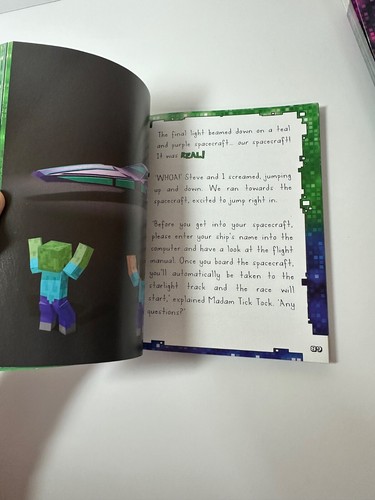 The final light beamed down on a teal
and purple spacecraft... our spacecraft!
It was REAL!
'WHOA!' Steve and I screamed, jumping
up and down. We ran towards the
spacecraft, excited to jump right in.
'Before you get into your spacecraft,
please enter your ship's name into the
computer and have a look at the flight
manual. Once you board the spacecraft,
you'll automatically be taken to the
starlight track and the race will
start,' explained Madam Tick Tock. 'Any
questions?'